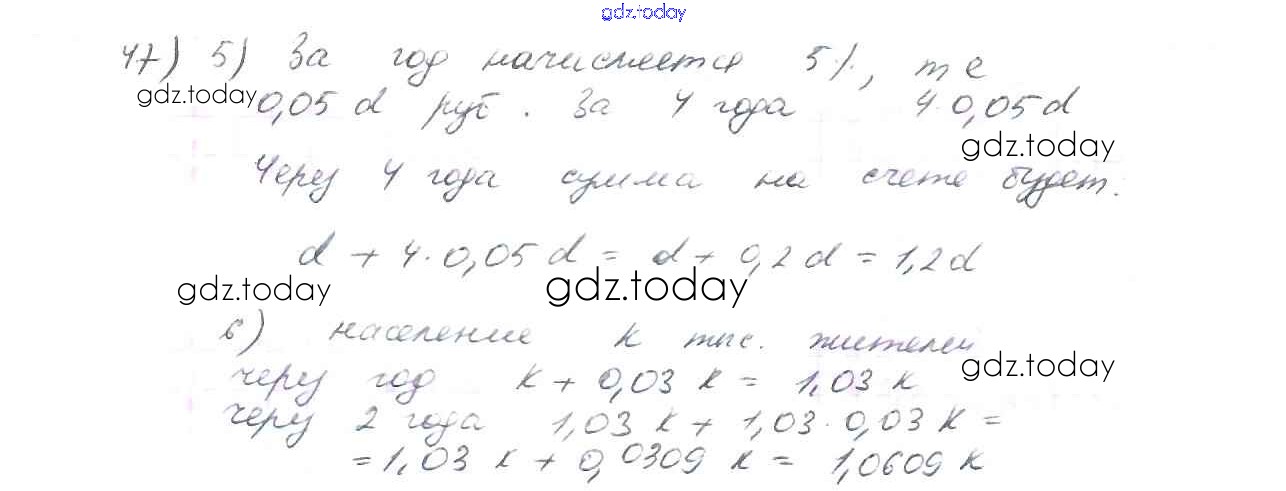 gdz.today
47) 5) За год начисляется 5%, т е
gdz.today 0,05 d руб. За 4 года 4·0,05 d
gdz.today
Через 4 года сумма на счете будет:
d + 4·0,05 d = d + 0,2 d = 1,2 d
gdz.today gdz.today
6) население k тыс. жителей
gdz.today
через год k + 0,03 k = 1,03 k
через 2 года 1,03 k + 1,03·0,03 k =
= 1,03 k + 0,0309 k = 1,0609 k